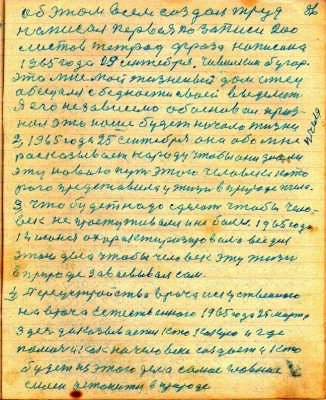 об этом всем создал труд
написал первая по записи 200
листов тетрад фраза написана
1965 года 29 сентября. Чивилким бугор.
это мне мой жизненый дом отец
обещал с бедности своей выделит
Я его независемо обосновал приз-
нал это наше будет начало жизни
2, 1965 года 25 сентября она обо мне
рассказывает народу чтобы они знали
эту новою путь этого человека кото
рого представила у жизнь в природе
3, что будет надо сделат чтобы чело-
век не простуживался и не болел. 1965 года
14 июня охарактиризировала все дни
этого дела чтобы человек эту жизнь
в природе завоевывал сам.
4, Переустройство врача искуственного
на врача естественного 1965 года 25 марта
Здес доказывается кто кому и где
помочи как на человеке создает и кто
будет из этого дела самое главные
силы автонити в природе